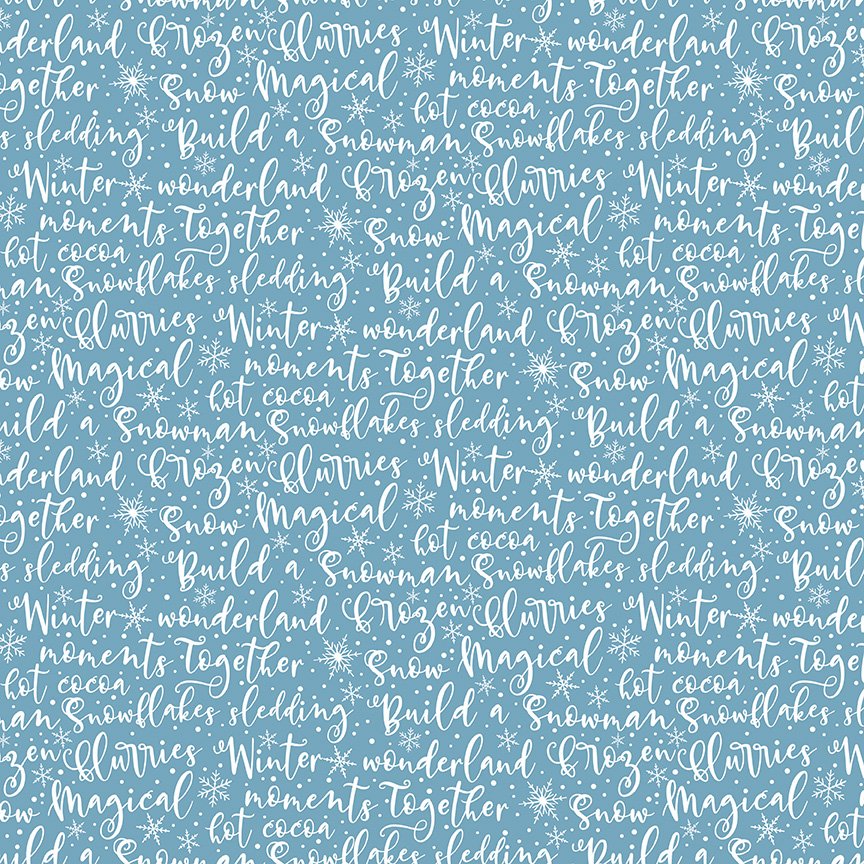 nderland Frozen Flurries Winter wonderland Frozen
ogether Snow Magical moments Together Snow
hot cocoa
s sledding Build a Snowman Snowflakes sledding Buil
Winter wonderland Frozen Flurries Winter wonde
moments Together Snow Magical moments Toge
hot cocoa hot cocoa
man Snowflakes sledding Build a Snowman Snowflakes sl
zen Flurries Winter wonderland Frozen Flurries W
ow Magical moments Together Snow Magical
hot cocoa
uild a Snowman Snowflakes sledding Build a Snowman
nderland Frozen Flurries Winter wonderland Frozen
ogether Snow Magical moments Together Snow
hot cocoa
s sledding Build a Snowman Snowflakes sledding Buil
Winter wonderland Frozen Flurries Winter wonde
moments Together Snow Magical moments Toge
hot cocoa hot cocoa
man Snowflakes sledding Build a Snowman Snowflakes sl
zen Flurries Winter wonderland Frozen Flurries W
ow Magical moments Together Snow Magical
hot cocoa
uild a Snowman Snowflakes sledding Build a Snowman